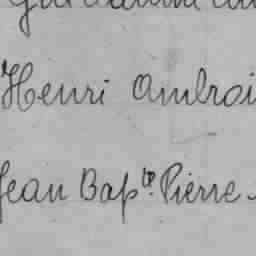 Henri Ambroi
Jean Bap.te Pierre